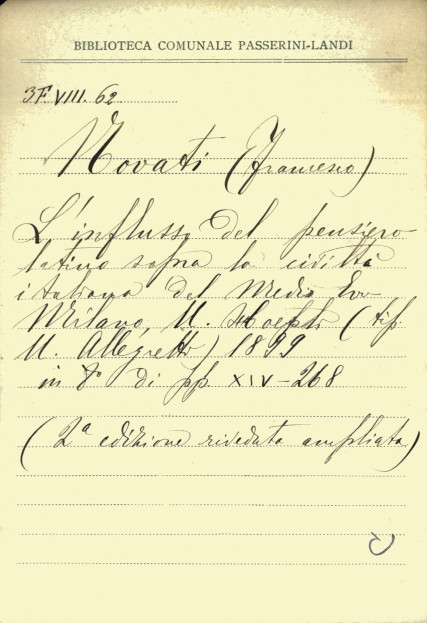 BIBLIOTECA COMUNALE PASSERINI-LANDI
3F. VIII. 62
Novati (Francesco)
L'influsso del pensiero
latino sopra la civiltà
italiana del Medio Evo
Milano, U. Hoepli (tip.
U. Allegretti) 1899
in 8° di pp. XIV-268
(2ª edizione riveduta ampliata)